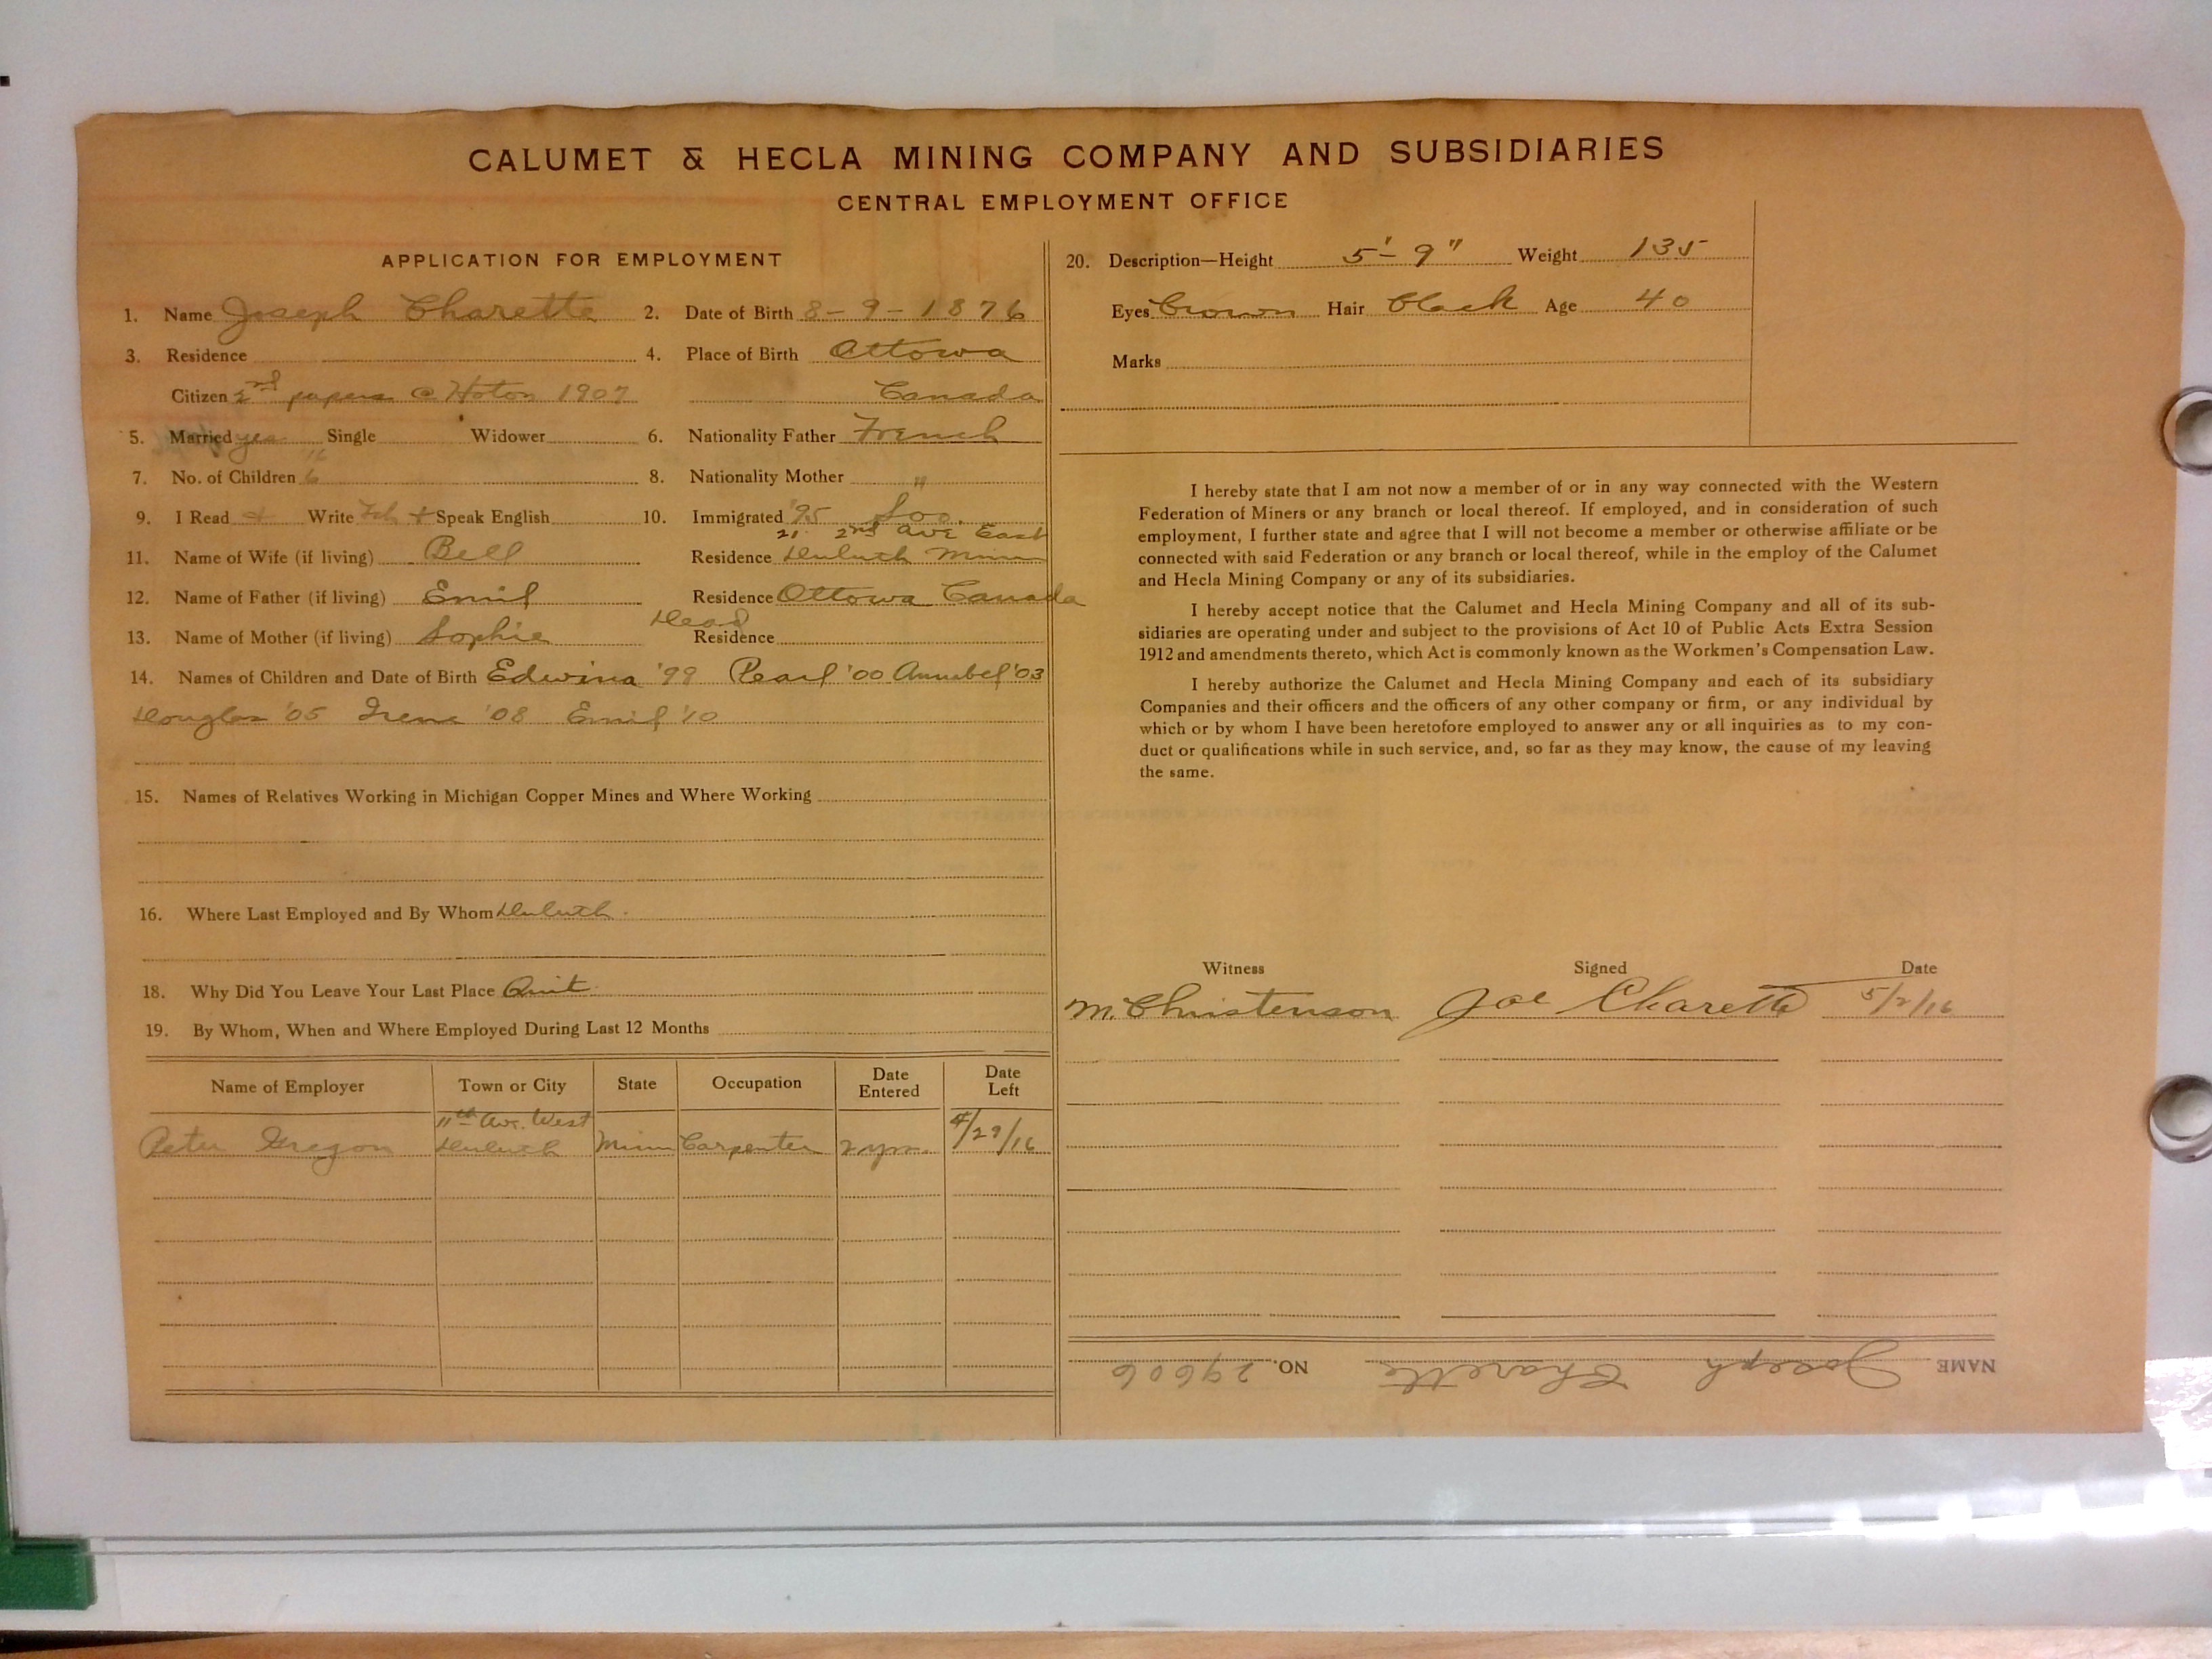 CALUMET & HECLA MINING COMPANY AND SUBSIDIARIES
CENTRAL EMPLOYMENT OFFICE
APPLICATION FOR EMPLOYMENT
1. Name Joseph Charette 2. Date of Birth 8-9-1876
3. Residence 4. Place of Birth Ottowa
Citizen 2nd papers @ Hoton 1907 Canada
5. Married yes Single Widower 6. Nationality Father French
7. No. of Children 6 8. Nationality Mother "
9. I Read + Write + Speak English 10. Immigrated '95 Soo.
21 2nd Ave East
11. Name of Wife (if living) Bell Residence Duluth Minn
12. Name of Father (if living) Emil Residence Ottowa Canada
13. Name of Mother (if living) Sophie Dead Residence
14. Names of Children and Date of Birth Edwina '99 Pearl '00 Annabel '03
Douglas '05 Irene '08 Emil '10
15. Names of Relatives Working in Michigan Copper Mines and Where Working
16. Where Last Employed and By Whom Duluth.
18. Why Did You Leave Your Last Place Quit
19. By Whom, When and Where Employed During Last 12 Months
Name of Employer Town or City State Occupation Date Entered Date Left
11th Ave. West
Peter Gregon Duluth Minn Carpenter 2 yrs. 4/29/16
20. Description—Height 5'-9" Weight 135
Eyes Brown Hair Black Age 40
Marks
I hereby state that I am not now a member of or in any way connected with the Western
Federation of Miners or any branch or local thereof. If employed, and in consideration of such
employment, I further state and agree that I will not become a member or otherwise affiliate or be
connected with said Federation or any branch or local thereof, while in the employ of the Calumet
and Hecla Mining Company or any of its subsidiaries.
I hereby accept notice that the Calumet and Hecla Mining Company and all of its sub-
sidiaries are operating under and subject to the provisions of Act 10 of Public Acts Extra Session
1912 and amendments thereto, which Act is commonly known as the Workmen's Compensation Law.
I hereby authorize the Calumet and Hecla Mining Company and each of its subsidiary
Companies and their officers and the officers of any other company or firm, or any individual by
which or by whom I have been heretofore employed to answer any or all inquiries as to my con-
duct or qualifications while in such service, and, so far as they may know, the cause of my leaving
the same.
Witness Signed Date
M. Christenson Joe Charette 5/2/16
NAME Joseph Charette NO. 29606